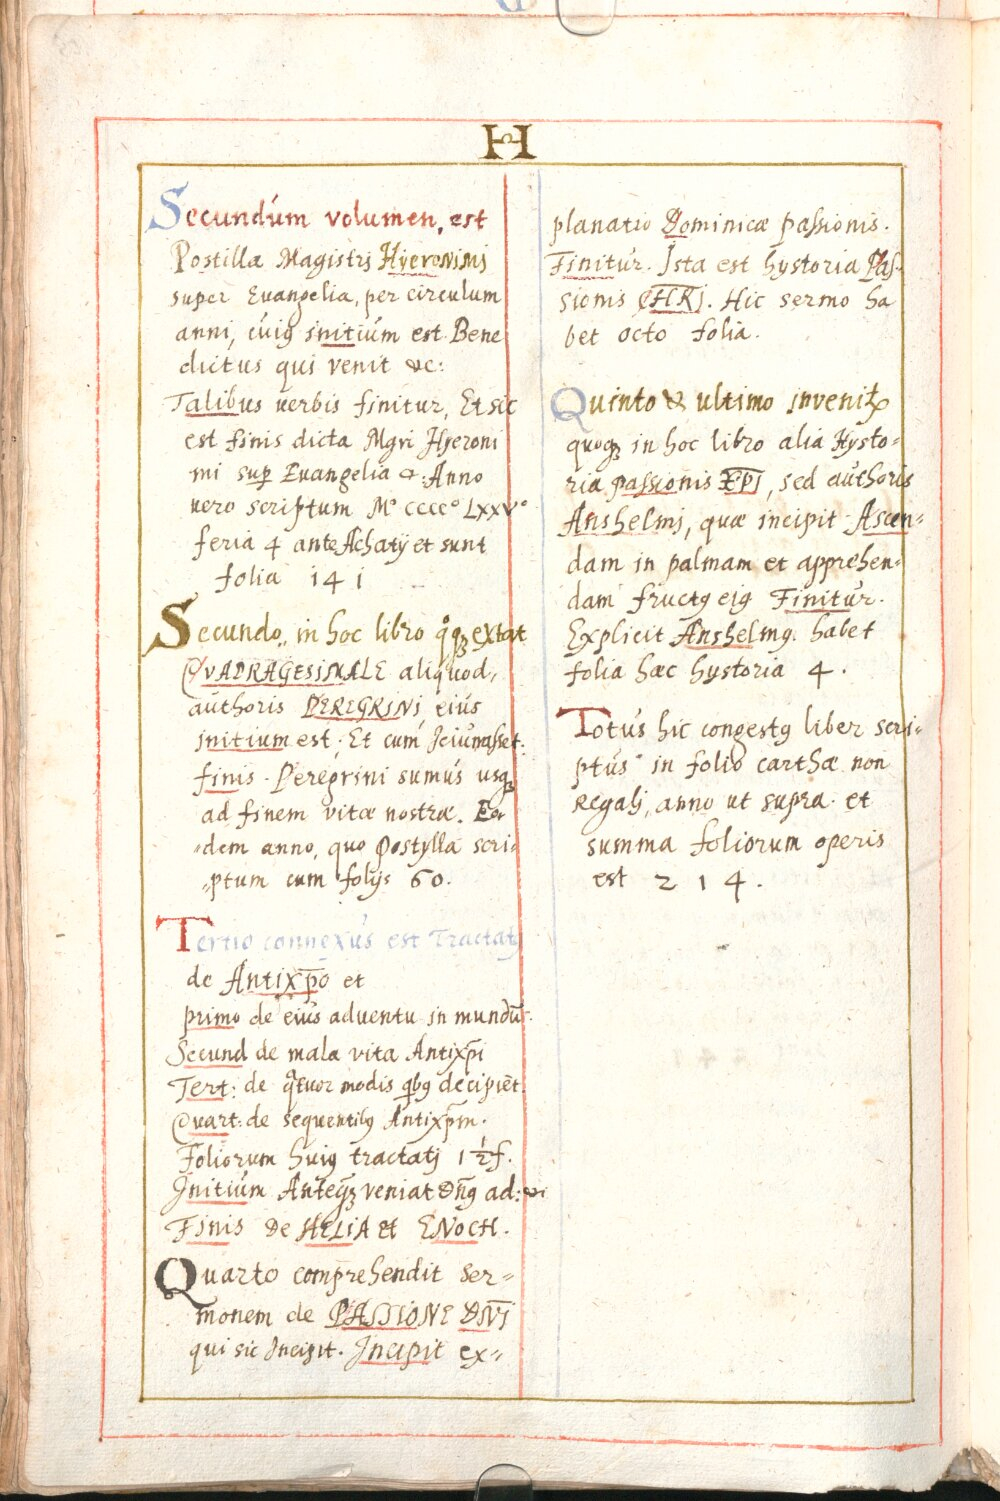 H
Secundúm volumen, est
Postilla Magistrj Hyeronimj
super Euangelia, per circulum
anni, cúiꝰ initiúm est. Bene
dictus qui venit &c:
Talibus verbis finitur, Et sic
est finis dicta Mgri Hyeroni
mi suꝑ Euangelia &. Anno
vero scriptum Mº ccccº Lxxvº
feria 4 ante Achatÿ et sunt
folia 141
Secundo, in hoc libro qͦqꝫ extat
QVADRAGESIMALE aliquod,
authoris PEREGRINI eiús
jnitium est. Et cúm Jeiunasset:
finis. Peregrini sumús usqꝫ
ad finem vitæ nostræ. Eo
dem anno, quo Postylla scri„
„ptum cum folÿs 60.
Tertio connexús est Tractatꝰ
de Antixp̄o et
primo de eiús aduentu in mundū.
Secund de mala vita Antixp̄i
Tert: de qͣtuor modis qͥbꝰ decipiēt.
Quart: de sequentibꝰ Antixp̄m.
Foliorum huiꝰ tractatj 1 ½ f.
Jnitiúm Anteqͣꝫ veniat dn̄ꝰ ad: &c
Finis de HELIA et ENOCH.
Quarto comprehendit ser„
monem de PASSIONE DN̄J
qui sic Jncipit. Jncipit ex„
planatio Dominicæ passionis.
Finitúr. Jsta est hystoria Pas„
sionis CHRJ. Hic sermo ha
bet octo folia.
Quinto & ultimo jnvenitꝛ
quoqꝫ in hoc libro alia Hysto„
ria passionis XP̄J, sed aúthoris
Anshelmj, quæ incipit. Ascen„
dam in palmam et apprehen„
dam fructꝰ eiꝰ Finitúr.
Explicit Anshelmꝰ. habet
folia hæc hystoria 4.
Totús hic congestꝰ liber scri„
ptús in folio carthæ non
Regalj, anno ut supra. et
summa foliorum operis
est 214.